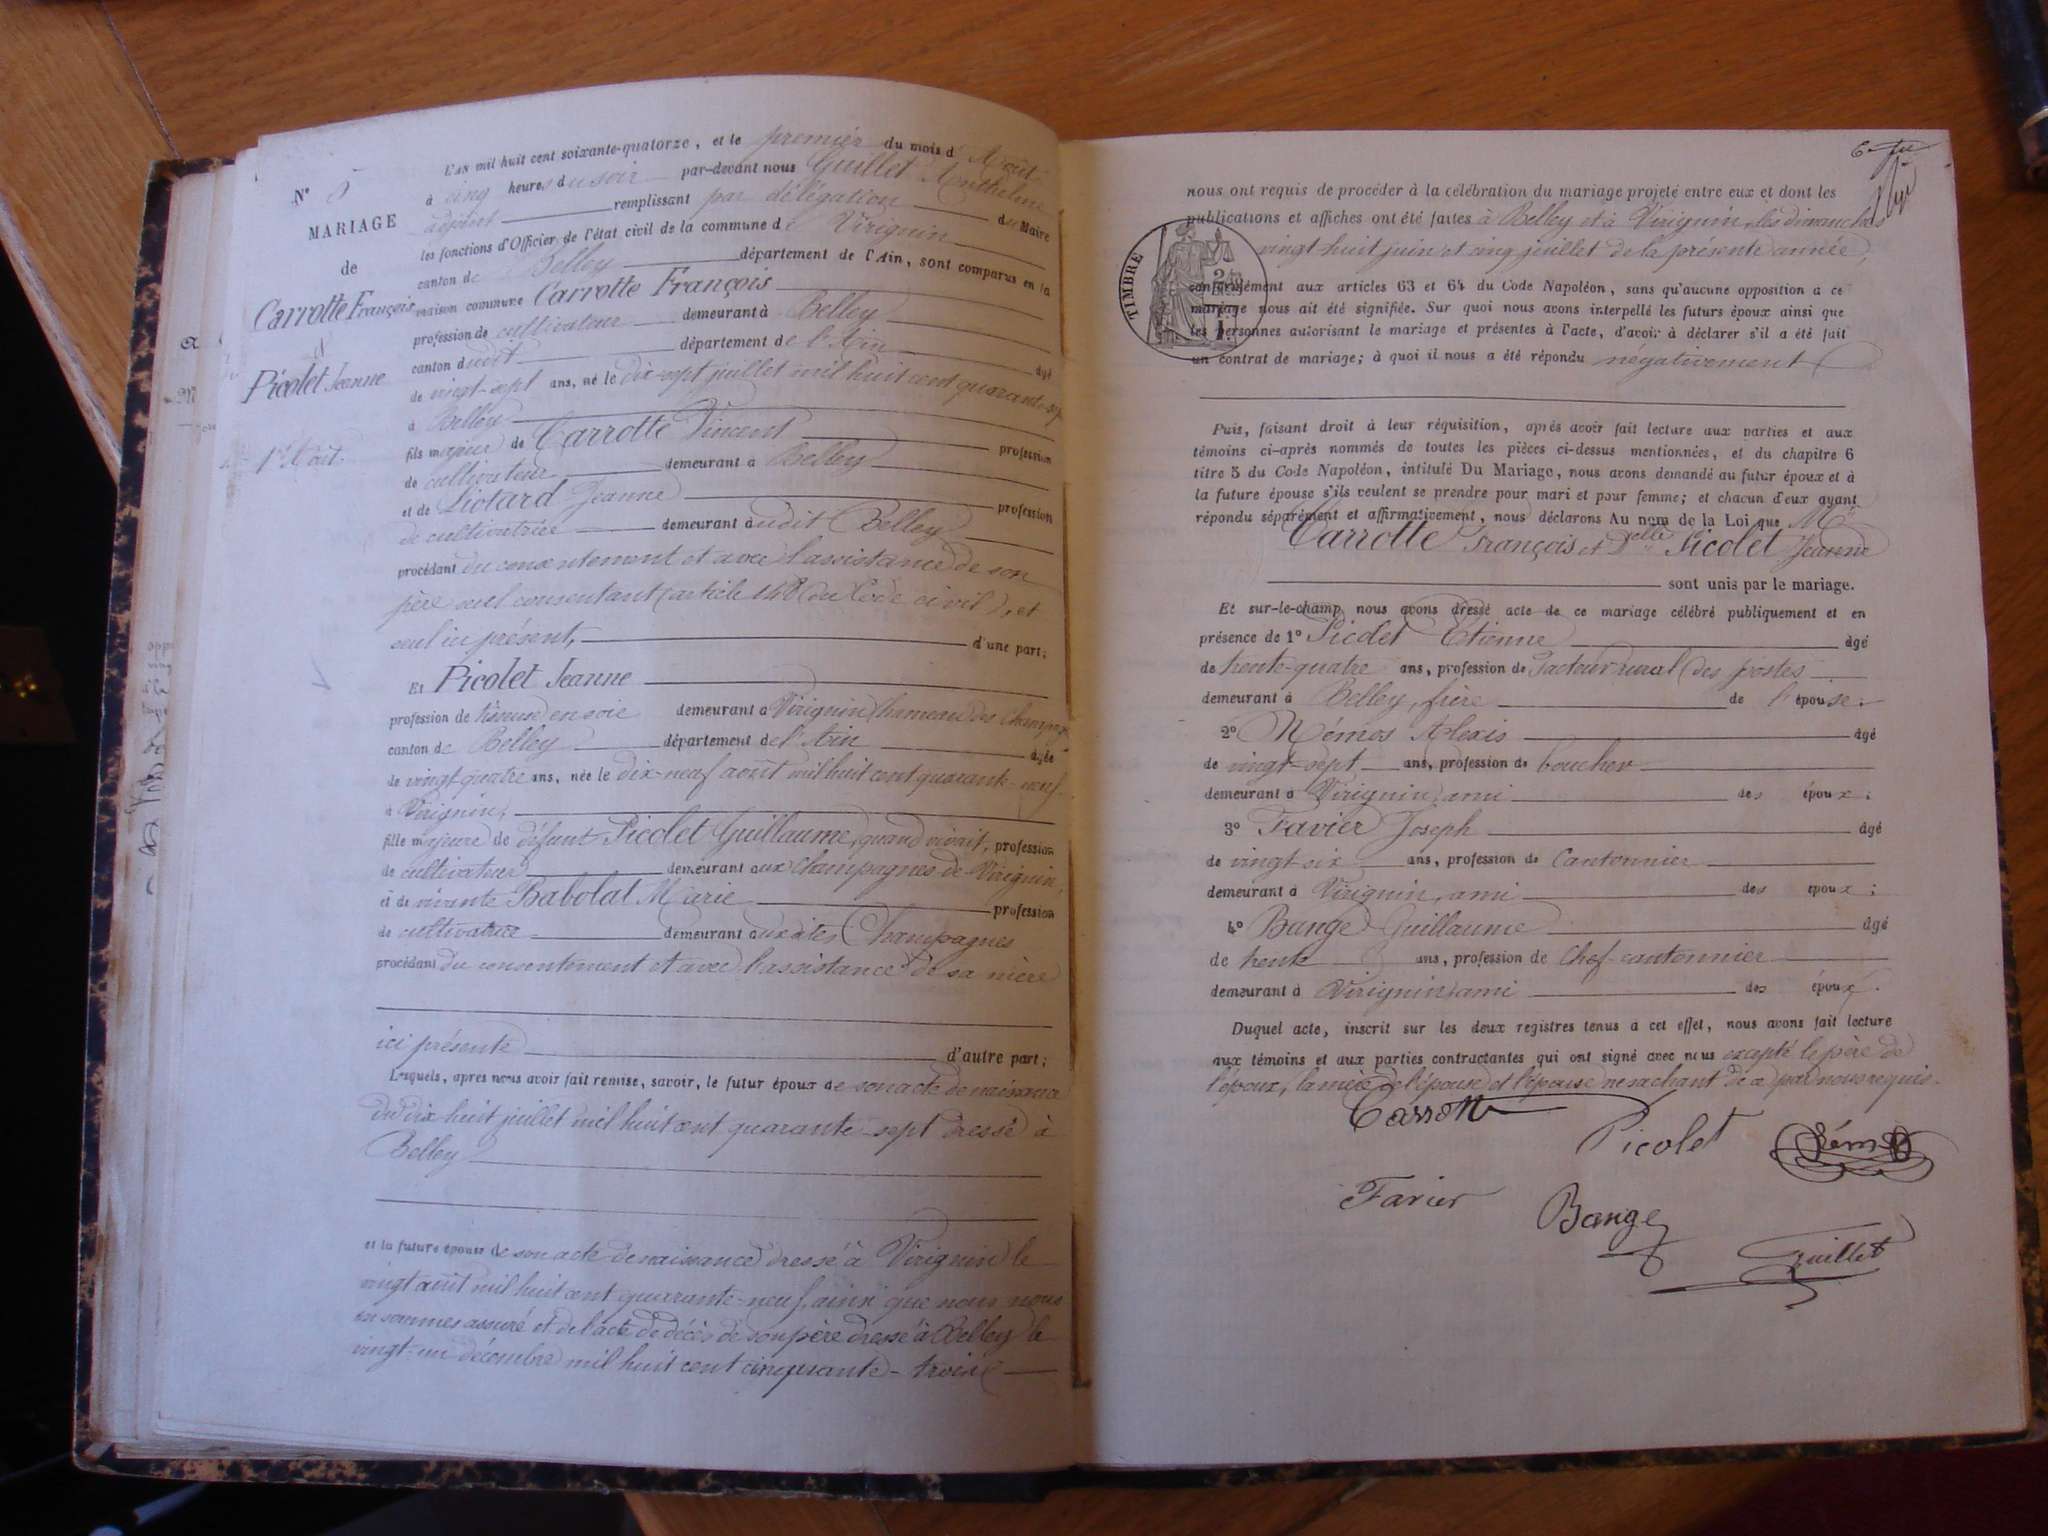 N° 5
MARIAGE
de
Carrotte François
et
Picolet Jeanne
1er Août.
L'AN mil huit cent soixante-quatorze, et le premier du mois d'Août
à cinq heures du soir par-devant nous Guillet Anthelme
adjoint remplissant par délégation du Maire
les fonctions d'Officier de l'état civil de la commune de Virignin
canton de Belley département de l'Ain, sont comparus en la
maison commune Carrotte François
profession de cultivateur demeurant à Belley
canton dudit département de l'Ain âgé
de vingt-sept ans, né le dix-sept juillet mil huit cent quarante-sept
à Belley
fils majeur de Carrotte Vincent profession
de cultivateur demeurant à Belley
et de Liotard Jeanne profession
de cultivatrice demeurant audit Belley
procédant du consentement et avec l'assistance de son
père seul consentant (article 148 du Code civil), et
seul ici présent, d'une part;
Et Picolet Jeanne
profession de tisseuse en soie demeurant à Virignin hameau des Champagnes
canton de Belley département de l'Ain âgée
de vingt-quatre ans, née le dix-neuf août mil huit cent quarante-neuf
à Virignin,
fille majeure de défunt Picolet Guillaume, quand vivait, profession
de cultivateur demeurant aux Champagnes de Virignin,
et de vivante Babolat Marie profession
de cultivatrice demeurant auxdites Champagnes
procédant du consentement et avec l'assistance de sa mère
ici présente d'autre part;
Lesquels, après nous avoir fait remise, savoir, le futur époux de son acte de naissance
du dix-huit juillet mil huit cent quarante-sept dressé à
Belley
et la future épouse de son acte de naissance dressé à Virignin le
vingt août mil huit cent quarante-neuf, ainsi que nous nous
en sommes assuré et de l'acte de décès de son père dressé à Belley le
vingt-un décembre mil huit cent cinquante-trois
nous ont requis de procéder à la célébration du mariage projeté entre eux et dont les
publications et affiches ont été faites à Belley et à Virignin, les dimanches
vingt-huit juin et cinq juillet de la présente année,
TIMBRE
conformément aux articles 63 et 64 du Code Napoléon, sans qu'aucune opposition à ce
mariage nous ait été signifiée. Sur quoi nous avons interpellé les futurs époux ainsi que
les personnes autorisant le mariage et présentes à l'acte, d'avoir à déclarer s'il a été fait
un contrat de mariage; à quoi il nous a été répondu négativement
Puis, faisant droit à leur réquisition, après avoir fait lecture aux parties et aux
témoins ci-après nommés de toutes les pièces ci-dessus mentionnées, et du chapitre 6
titre 5 du Code Napoléon, intitulé Du Mariage, nous avons demandé au futur époux et à
la future épouse s'ils veulent se prendre pour mari et pour femme; et chacun d'eux ayant
répondu séparément et affirmativement, nous déclarons Au nom de la Loi que Mr
Carrotte François et Delle Picolet Jeanne
sont unis par le mariage.
Et sur-le-champ nous avons dressé acte de ce mariage célébré publiquement et en
présence de 1° Picolet Etienne âgé
de trente-quatre ans, profession de facteur rural des postes
demeurant à Belley, frère de l'épouse;
2° Mémos Alexis âgé
de vingt-sept ans, profession de boucher
demeurant à Virignin, ami des époux;
3° Favier Joseph âgé
de vingt-six ans, profession de Cantonnier
demeurant à Virignin, ami des époux;
4° Bange Guillaume âgé
de trente ans, profession de Chef-cantonnier
demeurant à Virignin, ami des époux.
Duquel acte, inscrit sur les deux registres tenus à cet effet, nous avons fait lecture
aux témoins et aux parties contractantes qui ont signé avec nous excepté le père de
l'époux, la mère de l'épouse et l'épouse ne sachant de ce par nous requis.
Carrotte
Picolet
Favier
Bange
Guillet